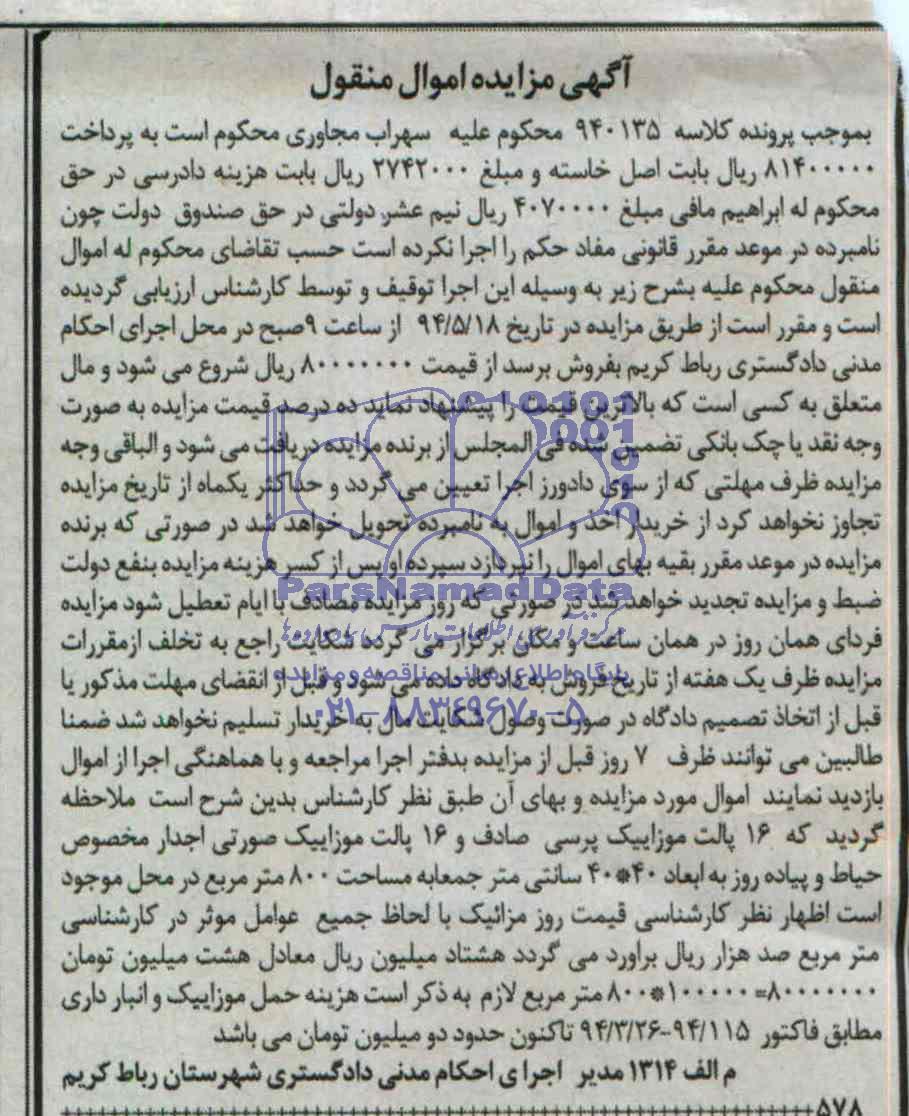 آگهی مزایده اموال منقول
بموجب پرونده کلاسه ۹۴۰۱۳۵ محکوم علیه سهراب مجاوری محکوم است به پرداخت
۸۱۴۰۰۰۰۰ ریال بابت اصل خاسته و مبلغ ۲۷۴۲۰۰۰ ریال بابت هزینه دادرسی در حق
محکوم له ابراهیم مافی مبلغ ۴۰۷۰۰۰۰ ریال نیم عشر دولتی در حق صندوق دولت چون
نامبرده در موعد مقرر قانونی مفاد حکم را اجرا نکرده است حسب تقاضای محکوم له اموال
منقول محکوم علیه بشرح زیر به وسیله این اجرا توقیف و توسط کارشناس ارزیابی گردیده
است و مقرر است از طریق مزایده در تاریخ ۹۴/۵/۱۸ از ساعت ۹صبح در محل اجرای احکام
مدنی دادگستری رباط کریم بفروش برسد از قیمت ۸۰۰۰۰۰۰۰ ریال شروع می شود و مال
متعلق به کسی است که بالاترین قیمت را پیشنهاد نماید ده درصد قیمت مزایده به صورت
وجه نقد یا چک بانکی تضمین شده فی المجلس از برنده مزایده دریافت می شود و الباقی وجه
مزایده ظرف مهلتی که از سوی دادورز اجرا تعیین می گردد و حداکثر یکماه از تاریخ مزایده
تجاوز نخواهد کرد از خریدار اخذ و اموال به نامبرده تحویل خواهد شد در صورتی که برنده
مزایده در موعد مقرر بقیه بهای اموال را نپردازد سپرده او پس از کسر هزینه مزایده بنفع دولت
ParsNamadData
ضبط و مزایده تجدید خواهد شد در صورتی که روز مزایده مصادف با ایام تعطیل شود مزایده
فردای همان روز در همان ساعت و مکان برگزار می گردد شکایت راجع به تخلف ازمقررات
پایگاه اطلاع رسانی مناقصه و مزایده
مزایده ظرف یک هفته از تاریخ فروش به دادگاه داده می شود و قبل از انقضای مهلت مذکور یا
۰۲۱-۸۸۳۴۹۶۷۰-۵
قبل از اتخاذ تصمیم دادگاه در صورت وصول شکایت مال به خریدار تسلیم نخواهد شد ضمنا
طالبین می توانند ظرف ۷ روز قبل از مزایده بدفتر اجرا مراجعه و با هماهنگی اجرا از اموال
بازدید نمایند اموال مورد مزایده و بهای آن طبق نظر کارشناس بدین شرح است ملاحظه
گردید که ۱۶ پالت موزاییک پرسی صادف و ۱۶ پالت موزاییک صورتی اجدار مخصوص
حیاط و پیاده روز به ابعاد ۴۰*۴۰ سانتی متر جمعابه مساحت ۸۰۰ متر مربع در محل موجود
است اظهار نظر کارشناسی قیمت روز مزائیک با لحاظ جمیع عوامل موثر در کارشناسی
متر مربع صد هزار ریال براورد می گردد هشتاد میلیون ریال معادل هشت میلیون تومان
۸۰۰۰۰۰۰۰=۱۰۰۰۰۰*۸۰۰ متر مربع لازم به ذکر است هزینه حمل موزاییک و انبار داری
مطابق فاکتور ۹۴/۱۱۵-۹۴/۳/۲۶ تاکنون حدود دو میلیون تومان می باشد
م الف ۱۳۱۴ مدیر اجرا ی احکام مدنی دادگستری شهرستان رباط کریم
۵۷۸